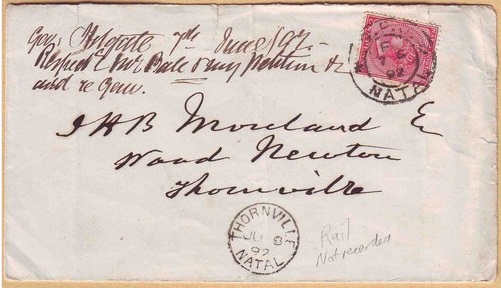 7th June 1892
Respect Mr Bale & my Petition &c
and re Gov.
NATAL
92
J H B Moreland E
Wood Newton
Thornville
THORNVILLE
JU 8
92
NATAL
Rail
Not recorded